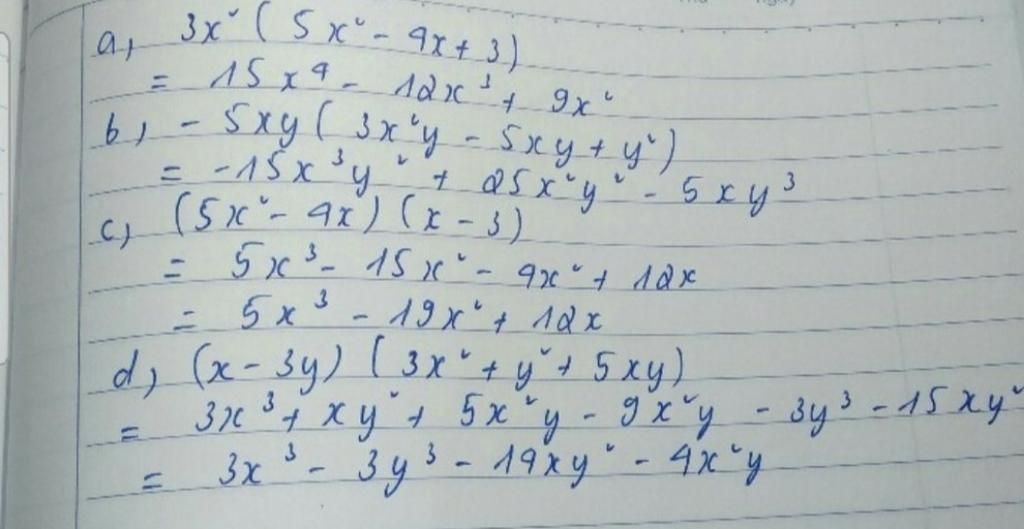 a, 3x² ( 5x² - 4x + 3 )
= 15x⁴ - 12x³ + 9x²
b, - 5xy ( 3x²y - 5xy + y² )
= -15x³y² + 25x²y² - 5xy³
c, (5x² - 4x) (x - 3)
= 5x³ - 15x² - 4x² + 12x
= 5x³ - 19x² + 12x
d, (x - 3y) ( 3x² + y² + 5xy)
= 3x³ + xy² + 5x²y - 9x²y - 3y³ - 15xy²
= 3x³ - 3y³ - 14xy² - 4x²y